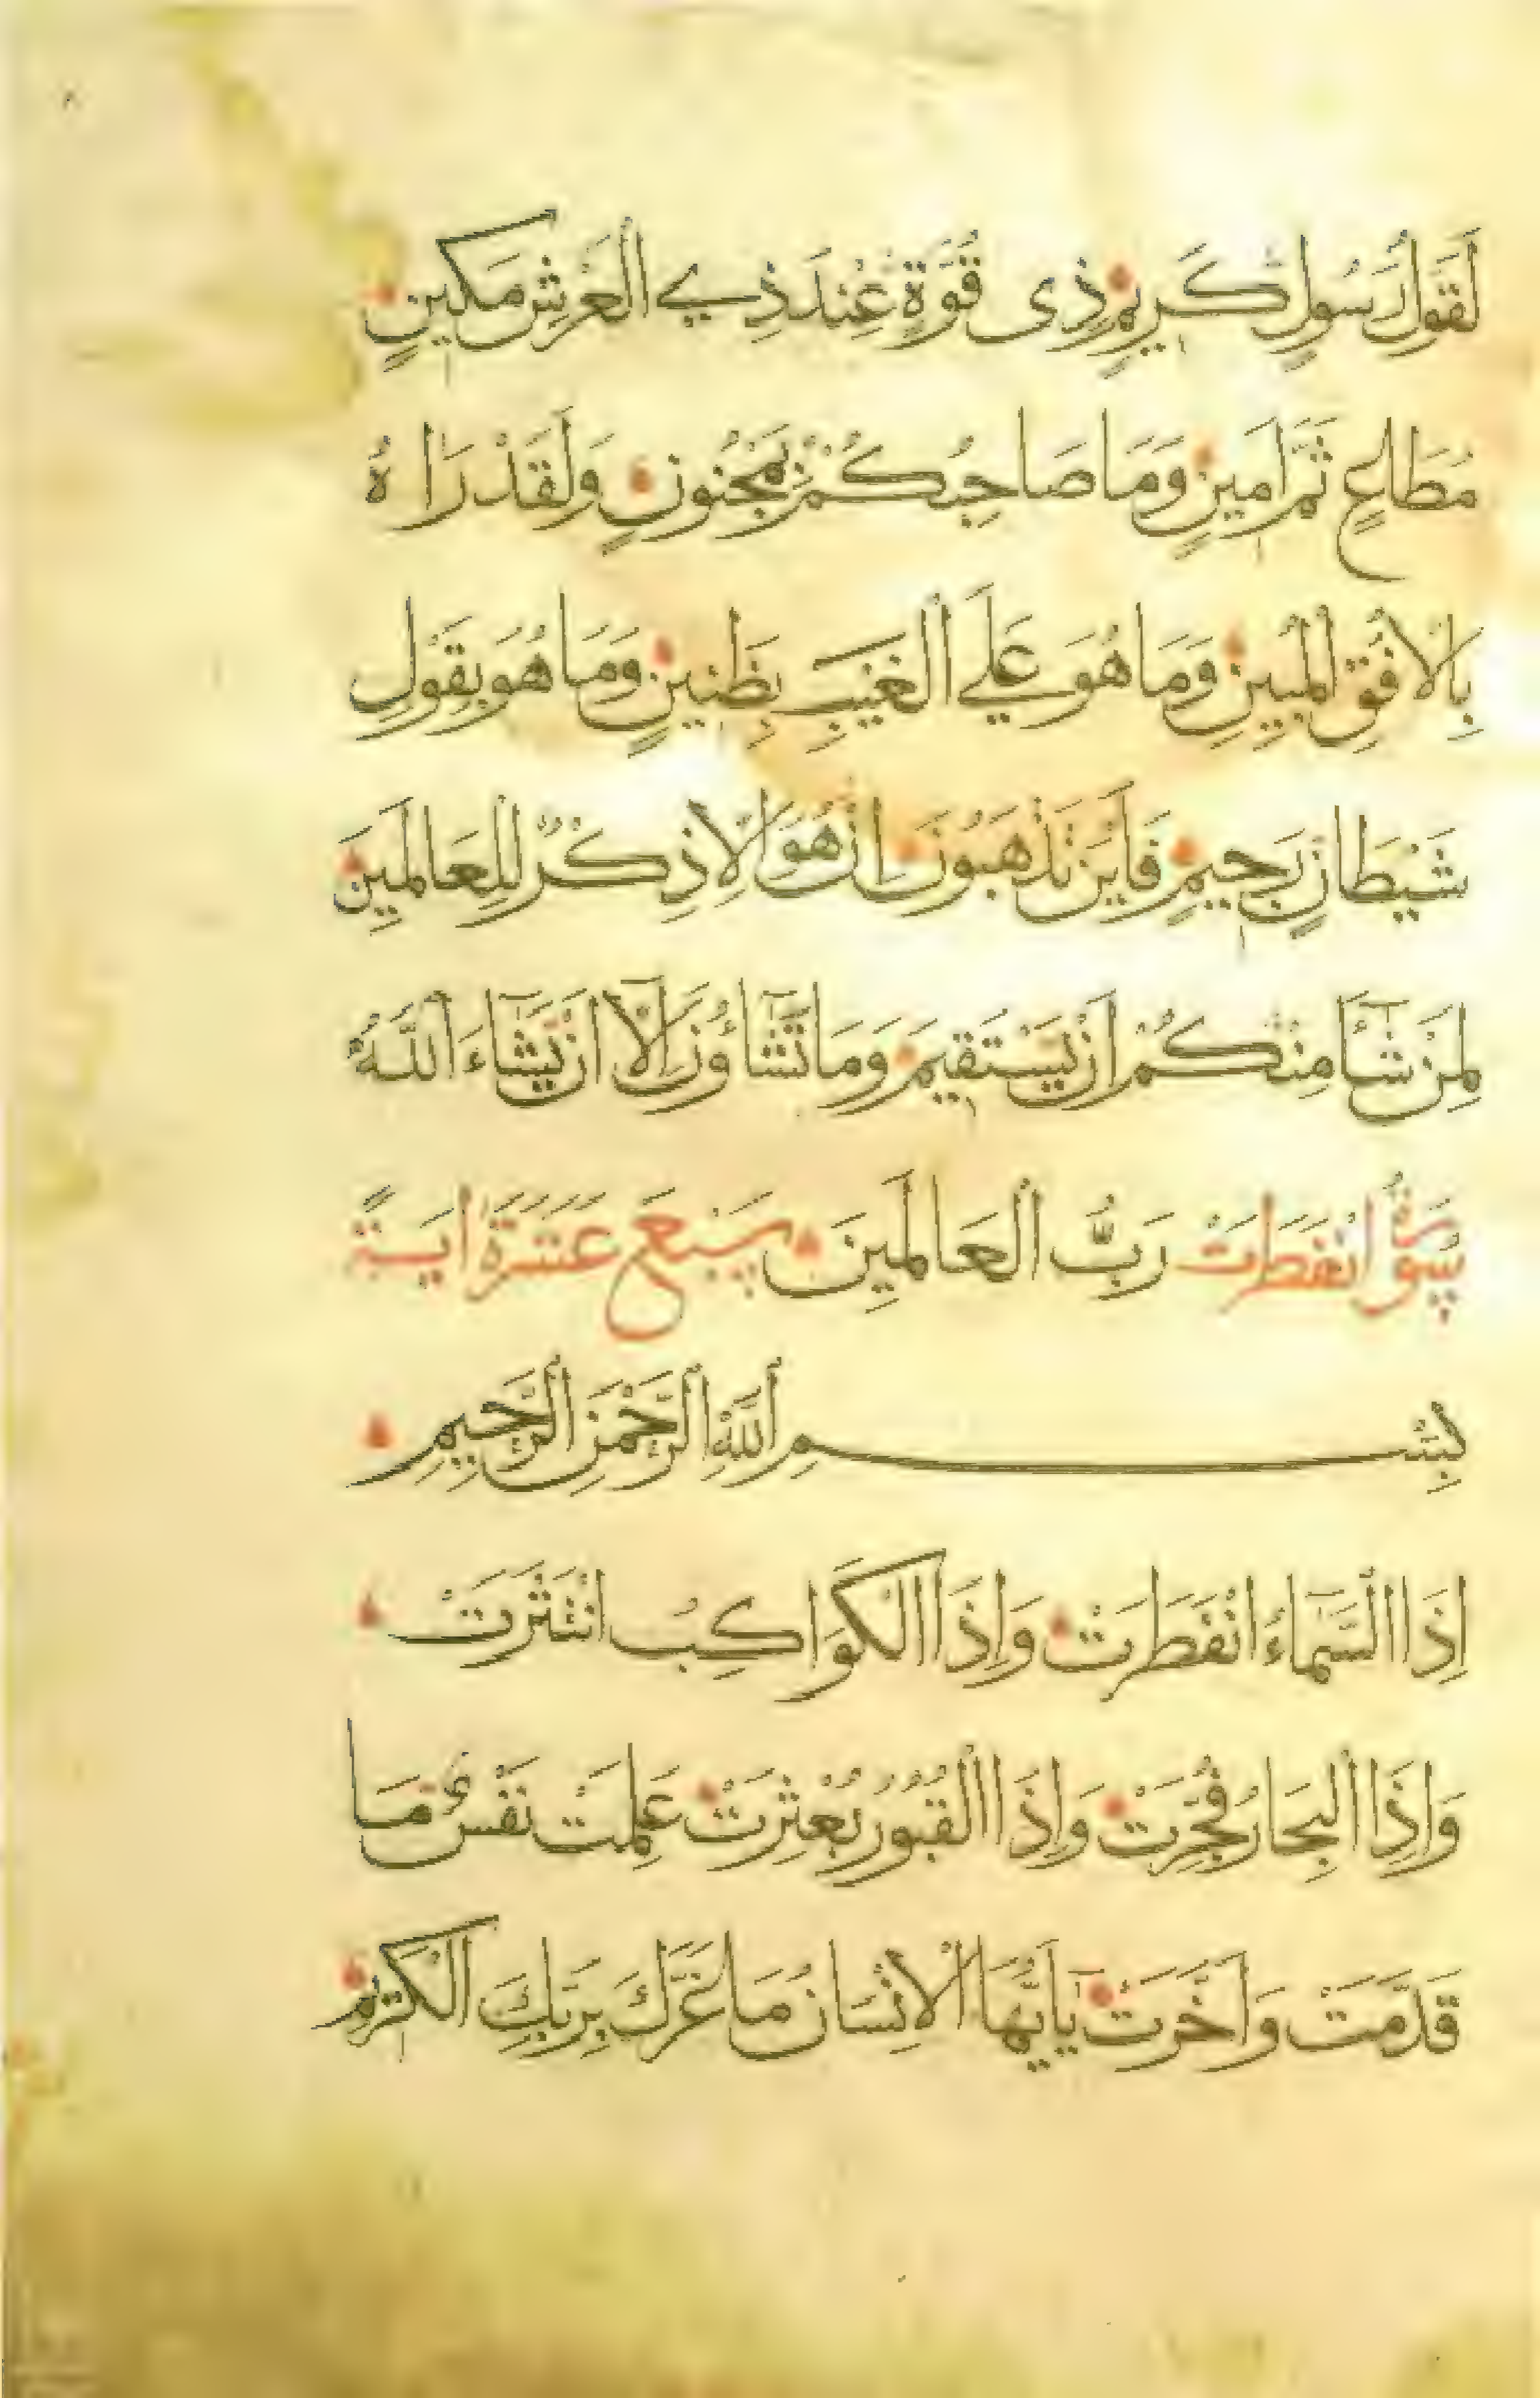 لَقَوْلُ رَسُولٍ كَرِيمٍ ذِى قُوَّةٍ عِنْدَ ذِي الْعَرْشِ مَكِينٍ
مُطَاعٍ ثَمَّ اَمِينٍ وَمَا صَاحِبُكُمْ بِمَجْنُونٍ وَلَقَدْ رَاٰهُ
بِالْاُفُقِ الْمُبِينِ وَمَا هُوَ عَلَي الْغَيْبِ بِظَنِينٍ وَمَا هُوَ بِقَوْلِ
شَيْطَانٍ رَجِيمٍ فَاَيْنَ تَذْهَبُونَ اِنْ هُوَ اِلَّا ذِكْرٌ لِلْعَالَمِينَ
لِمَنْ شَآءَ مِنْكُمْ اَنْ يَسْتَقِيمَ وَمَا تَشَآؤُنَ اِلَّآ اَنْ يَشَآءَ اللّٰهُ
سُورَةُ انْفَطَرَتْ رَبُّ الْعَالَمِينَ سَبْعَ عَشَرَةَ اٰيَةً
بِسْمِ اللّٰهِ الرَّحْمٰنِ الرَّحِيمِ
اِذَا السَّمَآءُ انْفَطَرَتْ وَاِذَا الْكَوَاكِبُ انْتَثَرَتْ
وَاِذَا الْبِحَارُ فُجِّرَتْ وَاِذَا الْقُبُورُ بُعْثِرَتْ عَلِمَتْ نَفْسٌ مَا
قَدَّمَتْ وَاَخَّرَتْ يَآاَيُّهَا الْاِنْسَانُ مَا غَرَّكَ بِرَبِّكَ الْكَرِيمِ